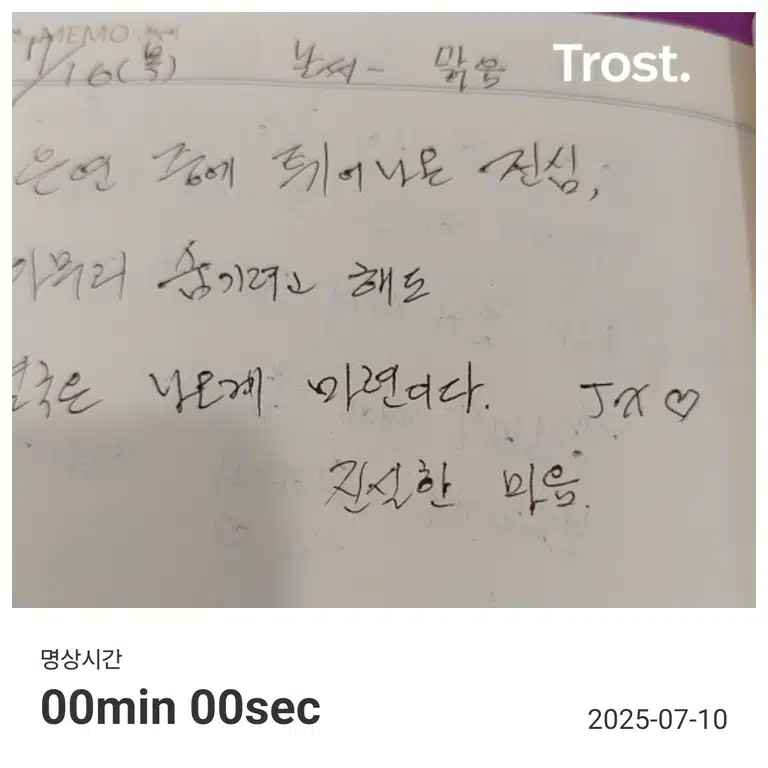 MEMO
/10(목) 날씨- 맑음
Trost.
은연 중에 튀어나온 진심,
아무리 숨기려고 해도
결국은 나오게 마련이다. JX♡
진실한 마음.
명상시간
00min 00sec
2025-07-10